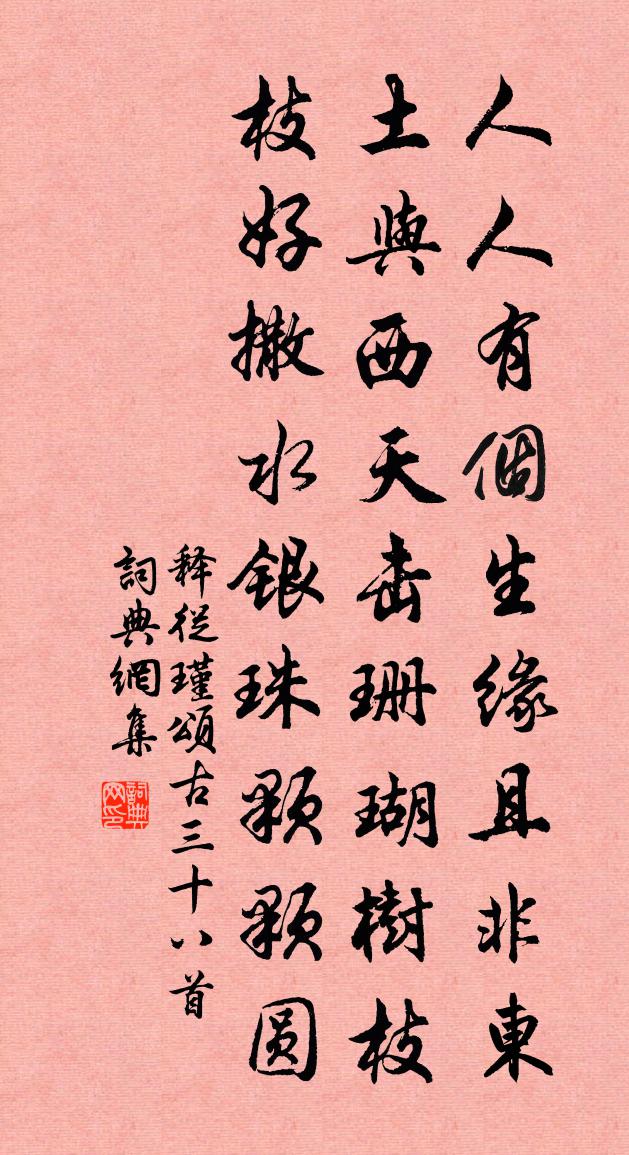 人人有個生緣且非東
土與西天击珊瑚樹枝
枝好撒水銀珠顆顆圆
释從瑾頌古三十八首
詞典網集
詞典
网印